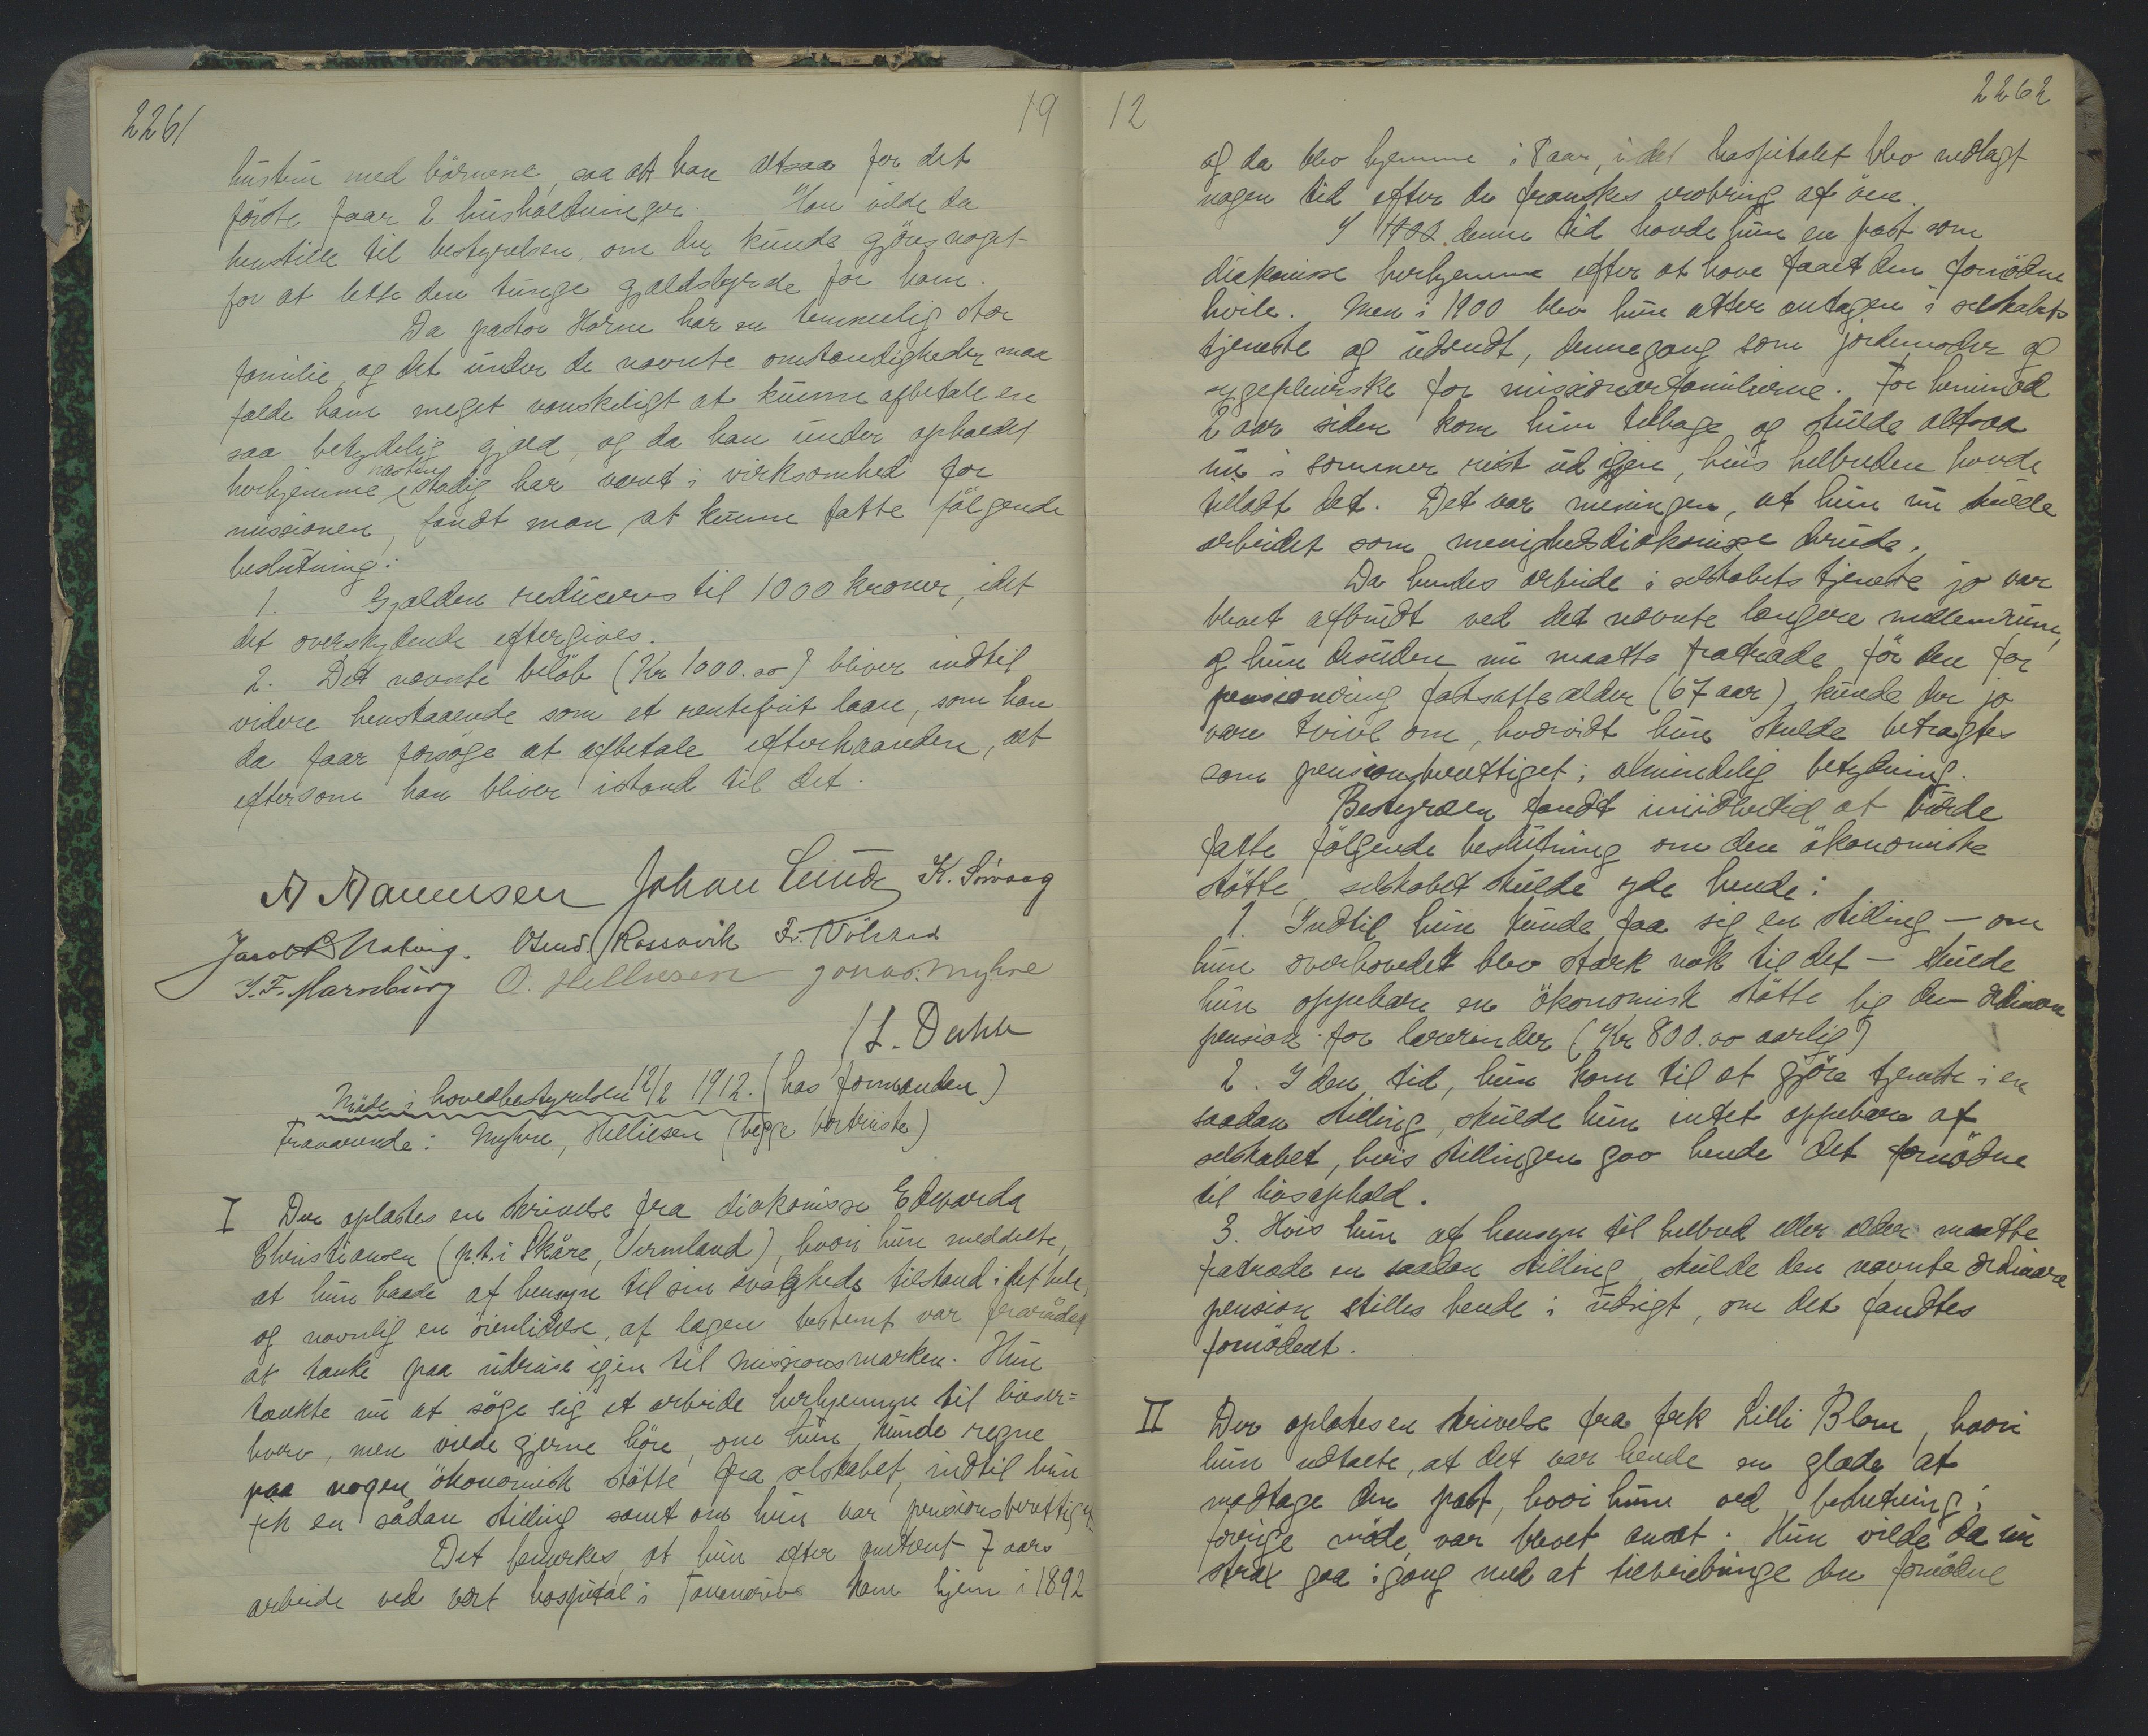 2261
19
hustru med börnene, saa att han altsaa for det
förste faar 2 husholdninger. Han vilde da
henstille til bestyrelsen, om der kunde gjöres noget
for at lette den tunge gjældsbyrde for ham.
Da pastor Horne har en temmelig stor
familie, og det under de nævnte omstændigheder maa
falde ham meget vanskeligt at kunne afbetale en
saa betydelig gjæld, og da han under opholdet
næsten
herhjemme stadig har været i virksomhed for
missionen, fandt man at kunne fatte fölgende
beslutning:
1. Gjælden reduceres til 1000 kroner, idet
det overskydende eftergives.
2. Det nævnte belöb (Kr 1000.00) bliver indtil
videre henstaaende som et rentefrit laan, som han
da faar forsöge at afbetale efterhaanden, alt
eftersom han bliver istand til det.
A Aanensen Johan Lunde K. Sörvaag
Jacob Natvig. Osmd. Rossavik Fr. Wölstad
J. F. Marnburg O. Helliesen Jonas Myhre
/L. Dahle
Möde i hovedbestyrelsen 12/2 1912. (hos formanden)
Fraværende: Myhre, Helliesen (begge bortreiste)
I Der oplæstes en skrivelse fra diakonisse Edvarda
Christiansen (p.t. i Skåre, Vermland), hvori hun meddelte,
at hun baade af hensyn til sin svaghedstilstand i det hele,
og navnlig en öienlidelse, af lægen bestemt var fraraadet
at tænke paa udreise igjen til missionsmarken. Hun
tænkte nu at söge sig et arbeide herhjemme til livser=
hverv, men vilde gjerne höre, om hun kunde regne
paa nogen ökonomisk stötte fra selskabet, indtil hun
fik en sådan stilling samt om hun var pensionsberettiget
Det bemerkes, at hun efter omtrent 7 aars
arbeide ved vort hospital i Tananarivo kom hjem i 1892
12
2262
og da blev hjemme i 8 aar, idet hospitalet blev nedlagt
nogen tid efter de franskes erobring af öen.
I denne tid havde hun en post som
diakonisse herhjemme efter at have faaet den fornödne
hvile. Men i 1900 blev hun atter antagen i selskabets
tjeneste og udsendt, dennegang som jordemoder og
sygepleierske for missionærfamilierne. For henimod
2 aar siden kom hun tilbage og skulde altsaa
nu i sommer reist ud igjen, hvis helbreden havde
tilladt det. Det var meningen, at hun nu skulde
arbeidet som menighedsdiakonisse derude.
Da hendes arbeide i selskabets tjeneste jo var
blevet afbrudt ved det nævnte længere mellemrum,
og hun desuden nu maatte fratræde för den for
pensionering fastsatte alder (67 aar), kunde der jo
være tvivl om, hvorvidt hun skulde betragtes
som pensionsberettiget i almindelig betydning.
Bestyrelsen fandt imidlertid at burde
fatte fölgende beslutning om den ökonomiske
stötte, selskabet skulde yde hende:
1. Indtil hun kunde faa sig en stilling – om
hun overhovedet blev stærk nok til det – skulde
hun oppebære en ökonomisk stötte lig den ordinære
pension for lærerinder (Kr 800.00 aarlig)
2. I den tid, hun kom til at gjöre tjeneste i en
saadan stilling, skulde hun intet oppebære af
selskabet, hvis stillingen gav hende det fornödne
til livsophold.
3. Hvis hun af hensyn til helbred eller alder maatte
fratræde en saadan stilling, skulde den nævnte ordinære
pension stilles hende i udsigt, om det fandtes
fornödent.
II Der oplæstes en skrivelse fra frk Lilli Blom, hvori
hun udtalte, at det var hende en glæde at
modtage den post, hvori hun ved beslutning i
forrige möde var blevet ansat. Hun vilde da nu
strax gaa igang med at tilveiebringe den fornödne